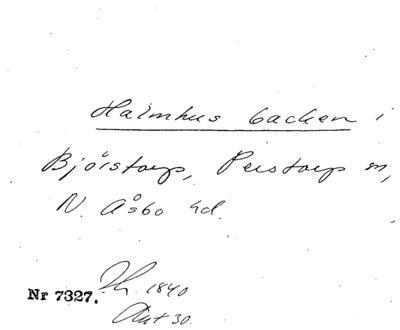 Halmhus backen i
Björstorp, Perstorp sn,
N. Åsbo hd.
Nr 7327. 1840
Ant 30.